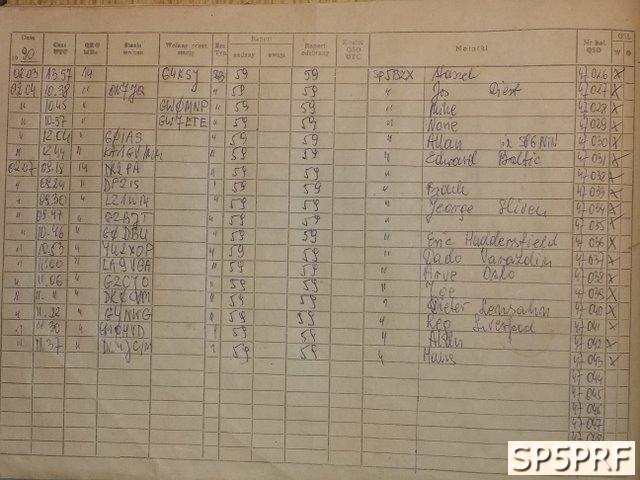 Data 19 90 Czas UTC QRG MHz Stacja wołana Wołany przez stację Raport nadany uwagi Raport odebrany Koniec QSO UTC Notatki Nr kol. QSO QSL W O
02.03 13.57 14 G4KSY 59 59 SP5BZX 47 026 X
02.04 10.38 " " 59 59 " Jos Diest 47 027 X
" 10.45 " GW0MNP " 59 59 " Mike 47 028 X
" 10.57 " GW7ETE " 59 59 " None 47 029 X
" 12.04 " G0IAS " 59 59 " Allan ex SP6NIN 47 030 X
" 12.44 " " 59 59 " Edward Baltic 47 031 X
02.07 09.18 14 DK2PA " 59 59 " 47 032 X
" 09.24 " DF2IS " 59 59 " Frank 47 033 X
" 09.30 " LZ1WM " 59 59 " George Sliven 47 034 X
" 09.47 " G2BJT " 59 59 " 47 035 X
" 10.46 " G0DBU " 59 59 " Eric Huddersfield 47 036 X
" 10.53 " 4U2XOP " 59 59 " Dado Varazdin 47 037 X
" 11.00 " LA9VBA " 59 59 " Arve Oslo 47 038 X
" 11.06 " " 59 59 " Joe 47 039 X
" 11.11 " " 59 59 " Dieter Lensahn 47 040 X
" 11.22 " G4NWG " 59 59 " Reg Liverpool 47 041 X
" 11.30 " " 59 59 " Alan 47 042 X
" 11.37 " " 59 59 " Hans 47 043 X
47 044
47 045
47 046
47 047
47 048
SP5PRF